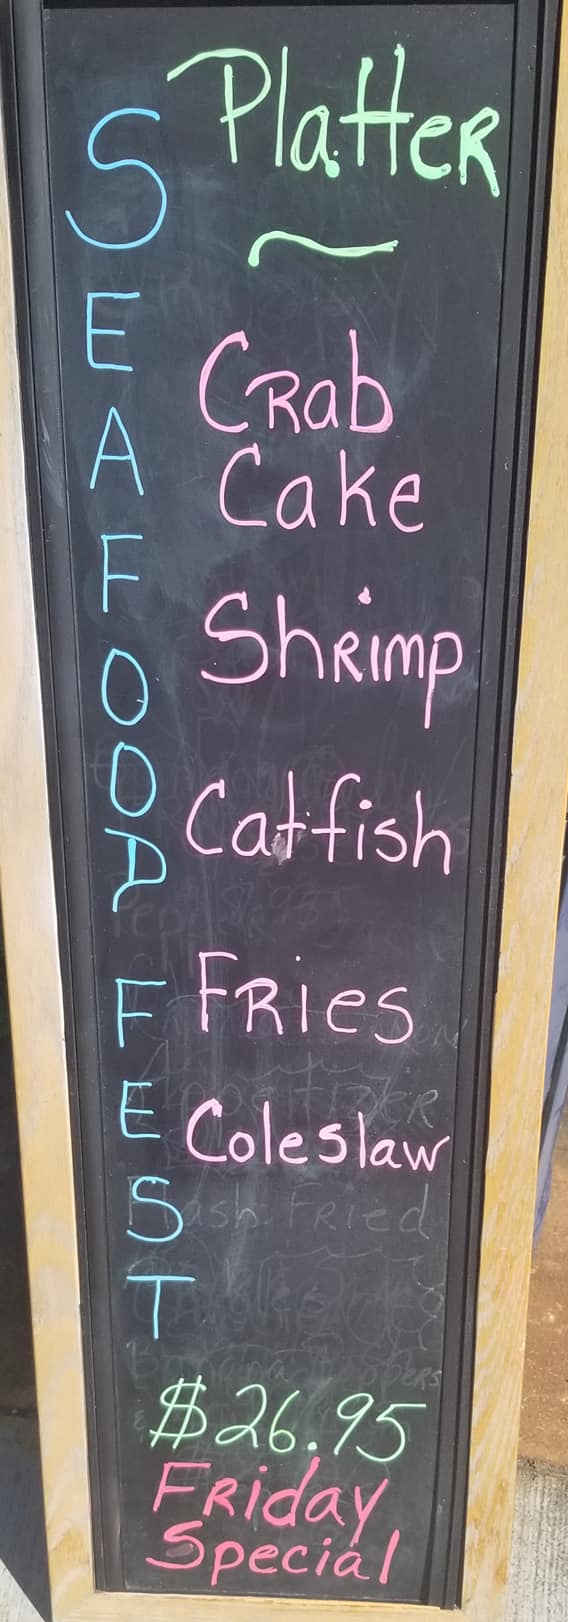 SEAFOOD FEST
Platter
Crab
Cake
Shrimp
Catfish
Fries
Coleslaw
$26.95
Friday
Special